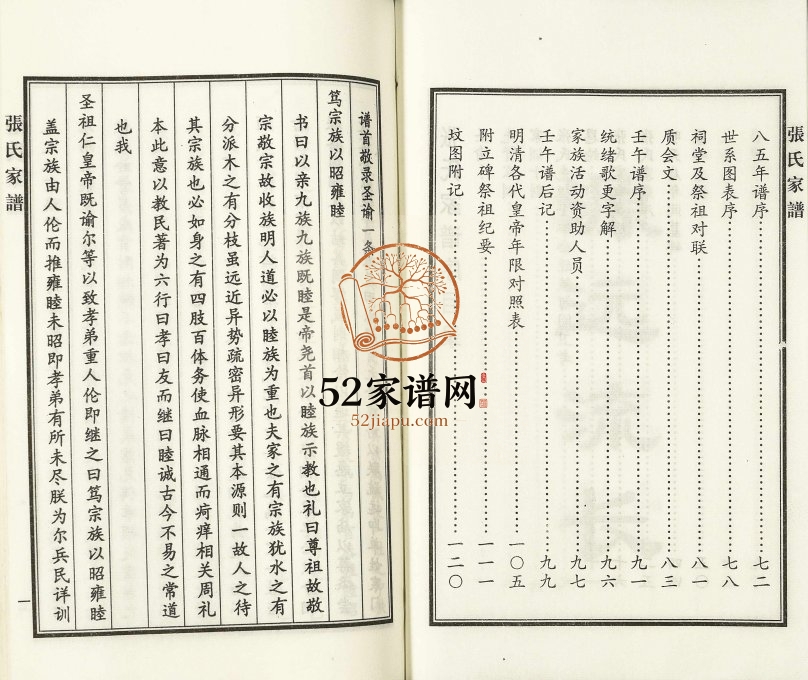 張氏家譜
八五年谱序……七二
世系图表序……七八
祠堂及祭祖对联……八一
质会文……八三
壬午谱序……九一
统绪歌更字解……九六
家族活动资助人员……九七
壬午谱后记……九九
明清各代皇帝年限对照表……一〇五
附立碑祭祖纪要……一一一
坟图附记……一二〇
谱首敬录圣谕一条
笃宗族以昭雍睦
书曰以亲九族九族既睦是帝尧首以睦族示教也礼曰尊祖故敬
宗敬宗故收族明人道必以睦族为重也夫家之有宗族犹水之有
分派木之有分枝虽远近异势疏密异形要其本源则一故人之待
其宗族也必如身之有四肢百体务使血脉相通而疴痒相关周礼
本此意以教民著为六行曰孝曰友而继曰睦诚古今不易之常道
也我
圣祖仁皇帝既谕尔等以致孝弟重人伦即继之曰笃宗族以昭雍睦
盖宗族由人伦而推雍睦未昭即孝弟有所未尽朕为尔兵民详训
張氏家譜
一
52家谱网
52jiapu.com